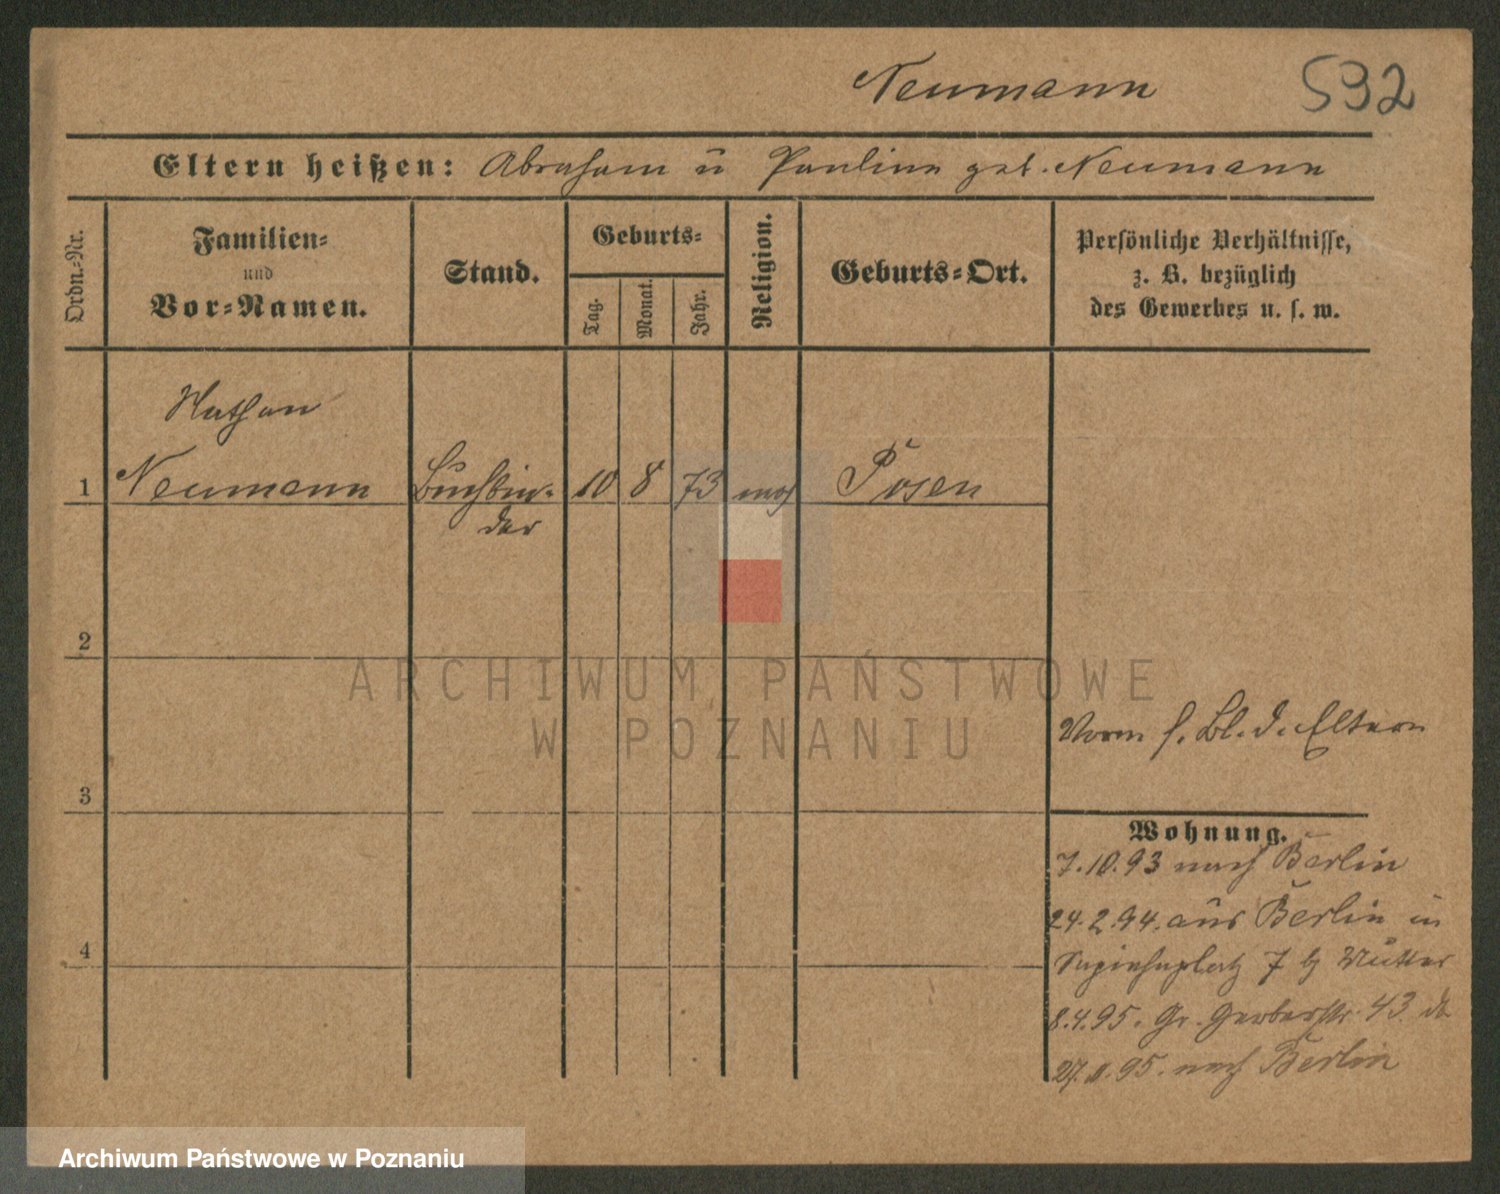 Neumann 592
Eltern heißen: Abraham u Pauline geb. Neumann
Ordn.-Nr.
Familien-
und
Vor-Namen.
Stand.
Geburts-
Tag.
Monat.
Jahr.
Religion.
Geburts-Ort.
Persönliche Verhältnisse,
z. B. bezüglich
des Gewerbes u. s. w.
Nathan
1 Neumann Buchbin- 10 8 73 mos Posen
der
2
ARCHIWUM PAŃSTWOWE
W POZNANIU
Vorm s. Bl. d. Eltern
3
Wohnung.
7.10.93 nach Berlin
24.2.94. aus Berlin in
Sapiehaplatz 7 b/ Mutter
4
8.4.95. Gr. Gerberstr. 43. do
27.11.95. nach Berlin
Archiwum Państwowe w Poznaniu